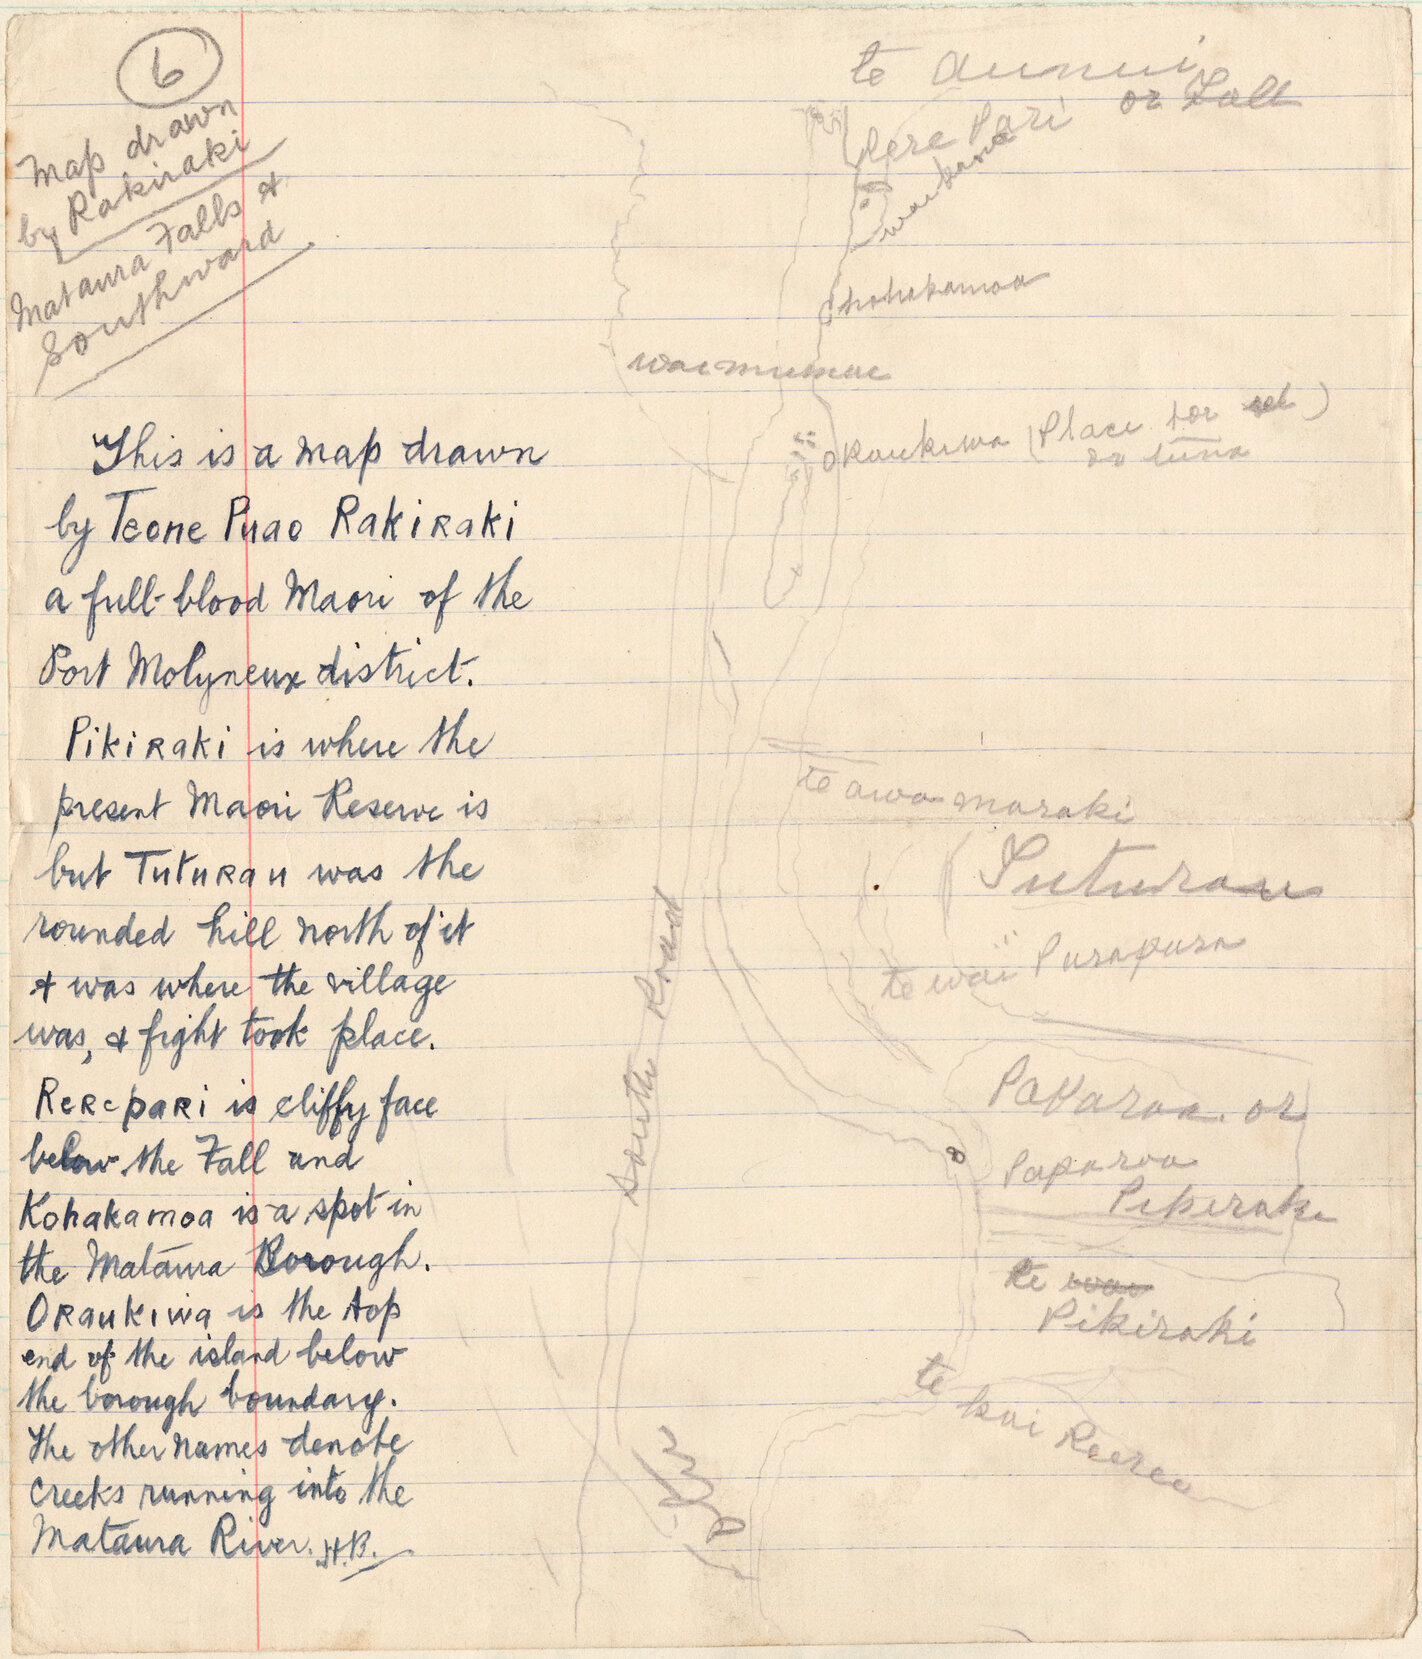 6
Map drawn
by Rakiraki
Mataura Falls &
Southward
This is a map drawn
by Teone Puao Rakiraki
a full-blood Maori of the
Port Molyneux district.
Pikiraki is where the
present Maori Reserve is
but Tuturau was the
rounded hill north of it
& was where the village
was, & fight took place.
Rerepari is cliffy face
below the Fall and
Kohakamoa is a spot in
the Mataura Borough.
Oraukiwa is the top
end of the island below
the borough boundary.
The other names denote
creeks running into the
Mataura River. H.B.
te aunui
or Fall
Rere Pari
waikana
Kohakamoa
waimumu
oraukiwa (Place for eel)
or tuna
te awa maraki
Tuturau
te wai Purapura
South Road
or
Paparoa
Pikiraki
te
Pikiraki
te kai Reeree